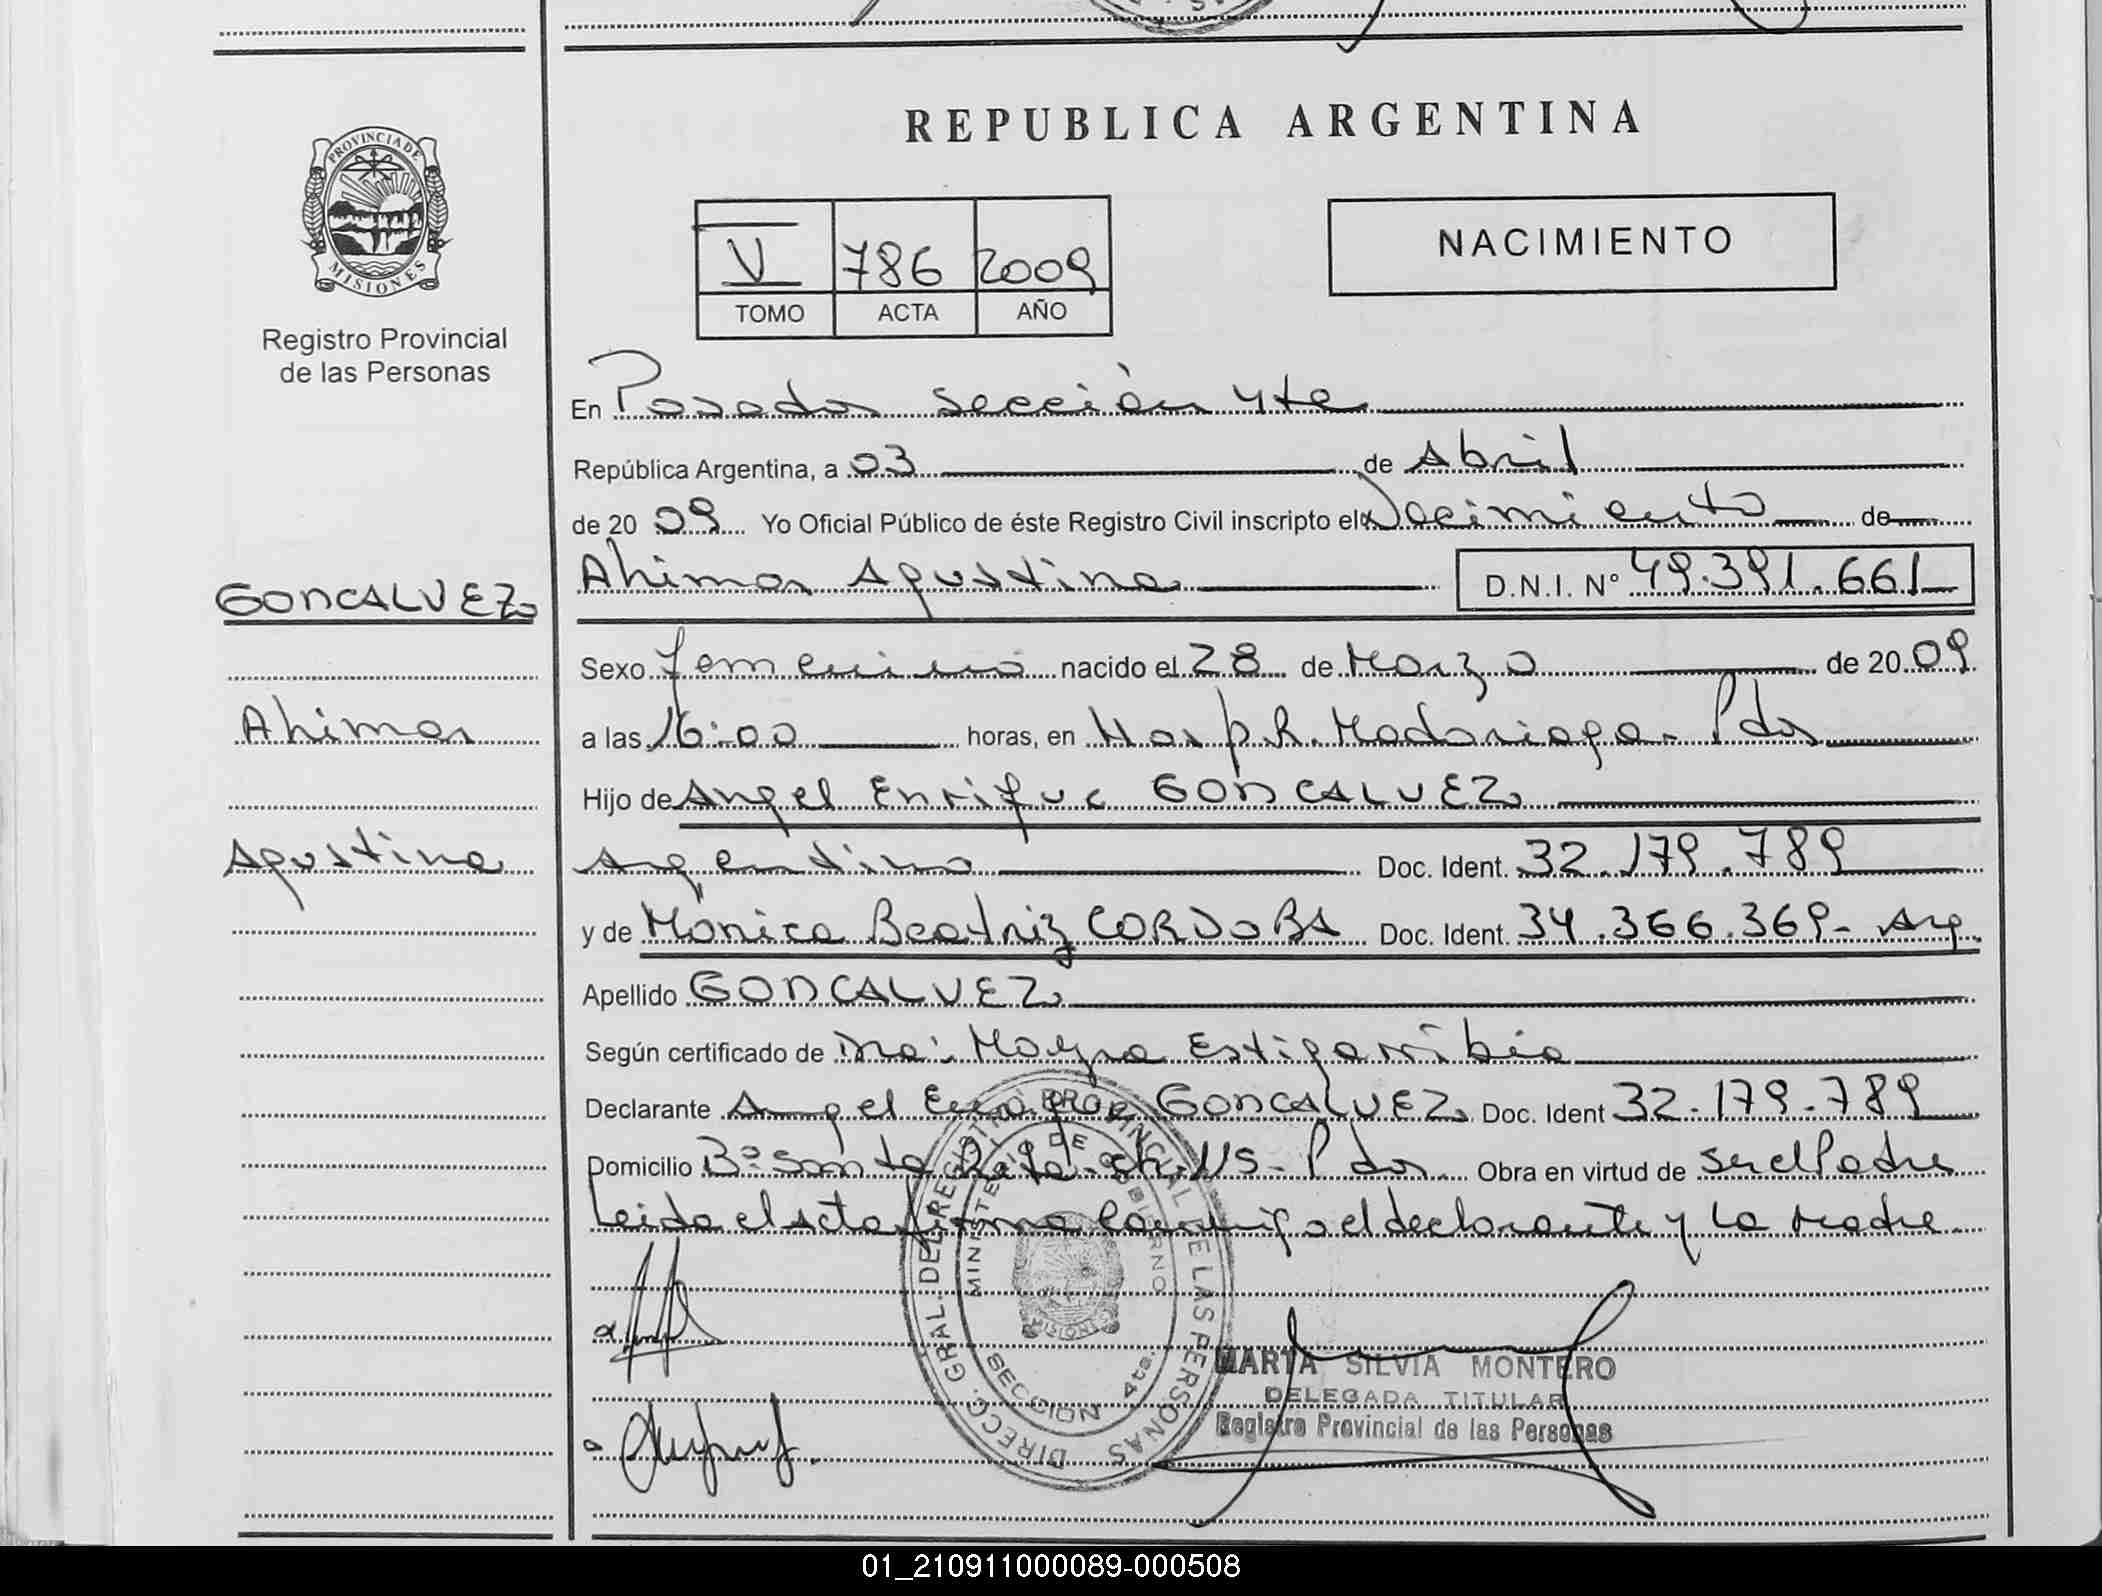 REPUBLICA ARGENTINA
PROVINCIA DE MISIONES
Registro Provincial
de las Personas
V 786 2009
TOMO ACTA AÑO
NACIMIENTO
En Posadas sección 4ta
República Argentina, a 03 de Abril
de 20 09 Yo Oficial Público de éste Registro Civil inscripto el Nacimiento de
GONCALVEZ
Ahimar
Agustina
Ahimar Agustina D.N.I. Nº 49.391.661
Sexo femenino nacido el 28 de Marzo de 20 09
a las 16:00 horas, en Hosp. R. Madariaga - Pdas
Hijo de Angel Enrique GONCALVEZ
Argentino Doc. Ident. 32.179.789
y de Mónica Beatriz CORDOBA Doc. Ident. 34.366.369- Arg.
Apellido GONCALVEZ
Según certificado de Mayra Estigarribia
Declarante Angel Enrique GONCALVEZ Doc. Ident 32.179.789
Domicilio Bº Santa Pdas. Obra en virtud de ser el Padre
Leida el acta firma conmigo el declarante y la Madre
DIRECC. GRAL. DEL REGISTRO PROVINCIAL DE LAS PERSONAS
MINISTERIO DE GOBIERNO
MISIONES
SECCION 4ta.
MARTA SILVIA MONTERO
DELEGADA TITULAR
Registro Provincial de las Personas
01_210911000089-000508